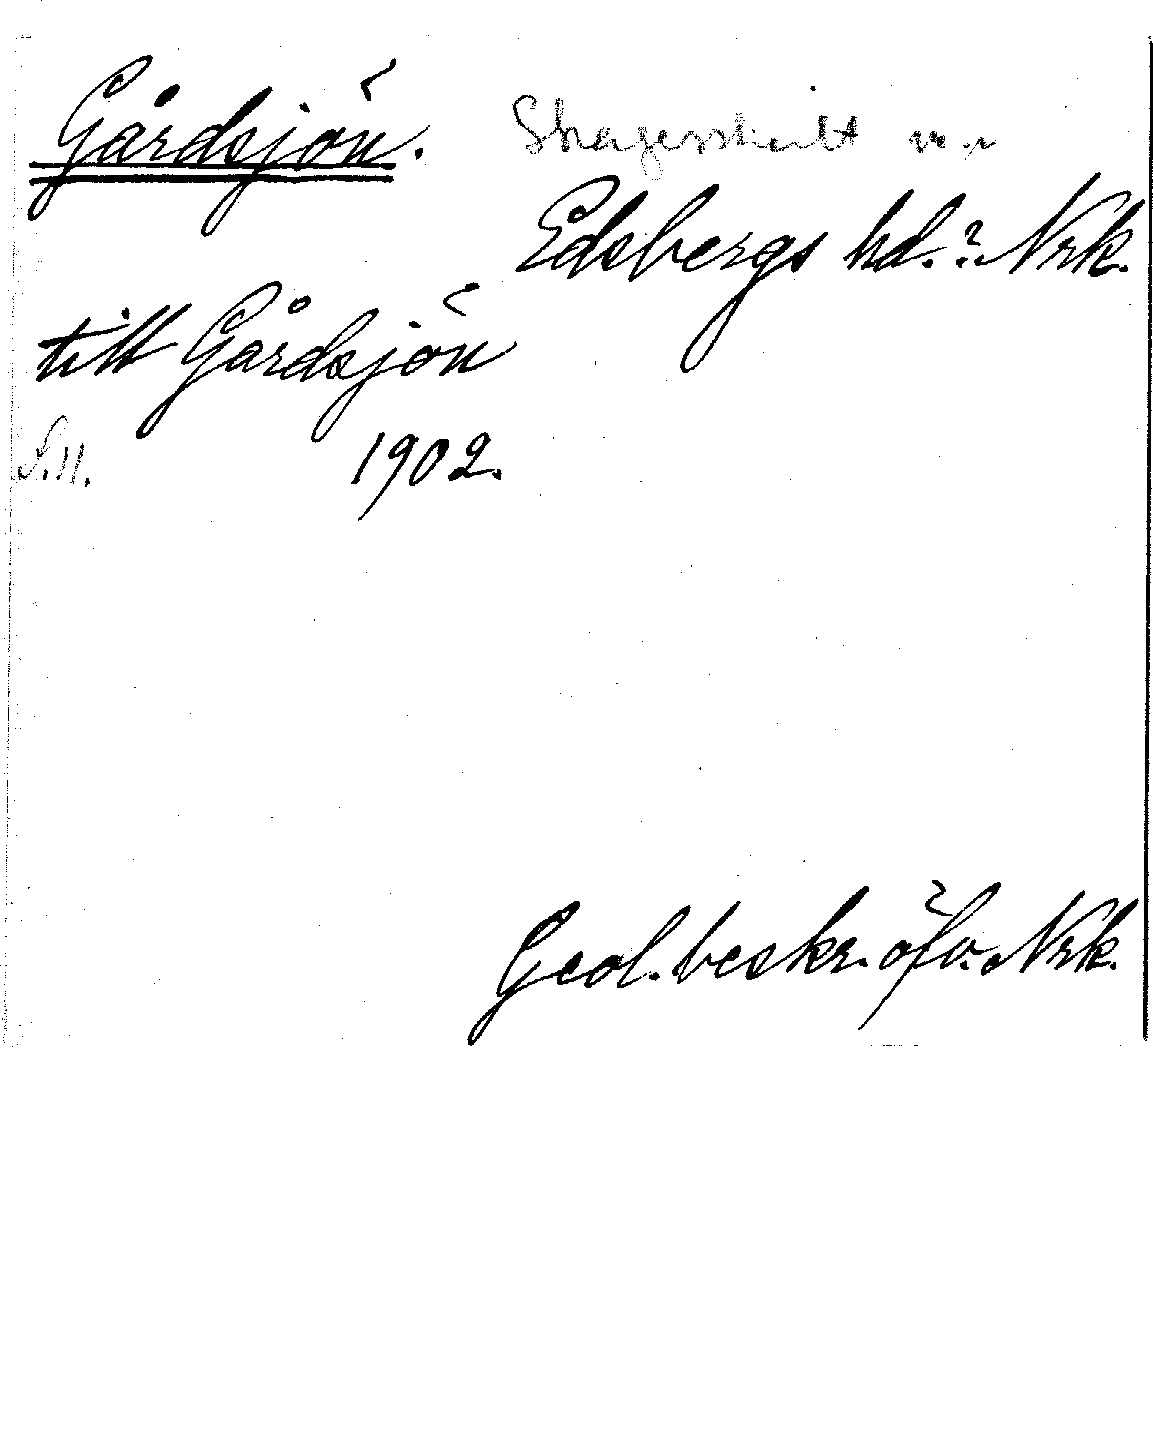 Gårdsjön. Skagershult
Edsbergs hd.? Nrk.
till Gårdsjön
1902.
Geol. beskr. öfv. Nrk.